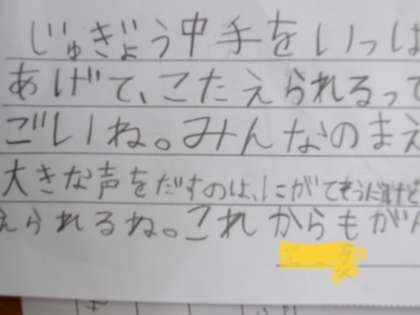 じゅぎょう中手をいっぱ
あげて、こたえられるって
ごしいね。みんなのまえ
大きな声をだすのは、にがてそうだけど
えられるね。これからもが